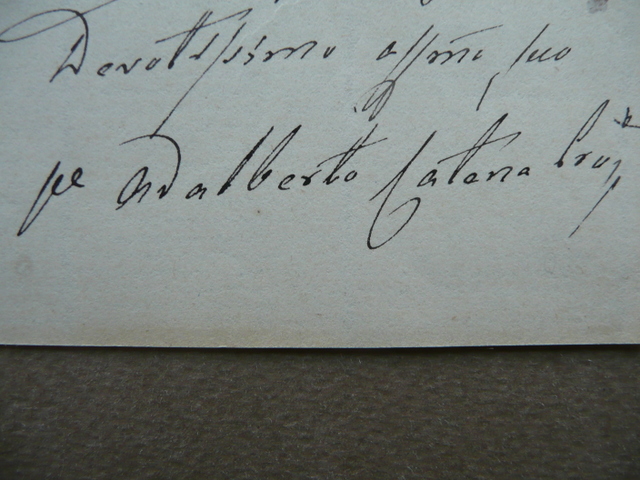 Devotissimo affmo suo
pe Adalberto Catena Prop